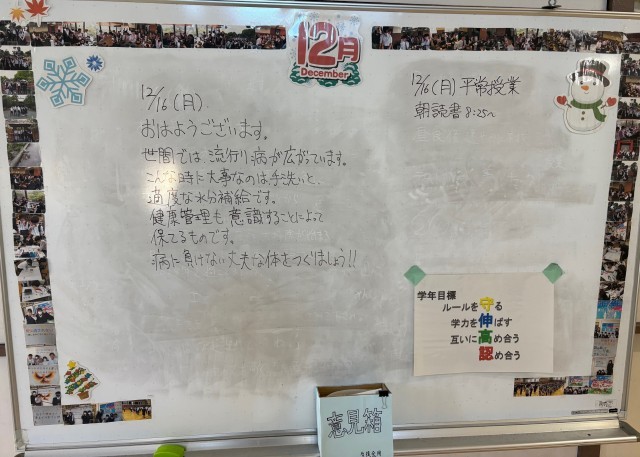 12月
December
12/16(月)
おはようございます。
世間では流行り病が広がっています。
こんな時に大事なのは手洗いと、
適度な水分補給です。
健康管理も意識することによって
保てるものです。
病に負けない丈夫な体をつくりましょう!!
12/16(月)平常授業
朝読書 8:25~
学年目標
ルールを守る
学力を伸ばす
互いに高め合う
認め合う
意見箱